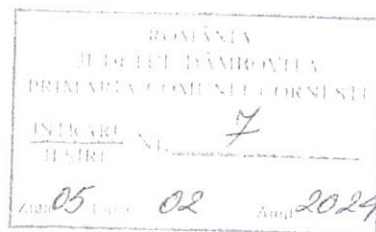 ROMÂNIA
JUDEŢUL DÂMBOVIŢA
PRIMĂRIA COMUNEI CORNEŞTI
INTRARE
IEŞIRE Nr. 7
Ziua 05 Luna 02 Anul 2024